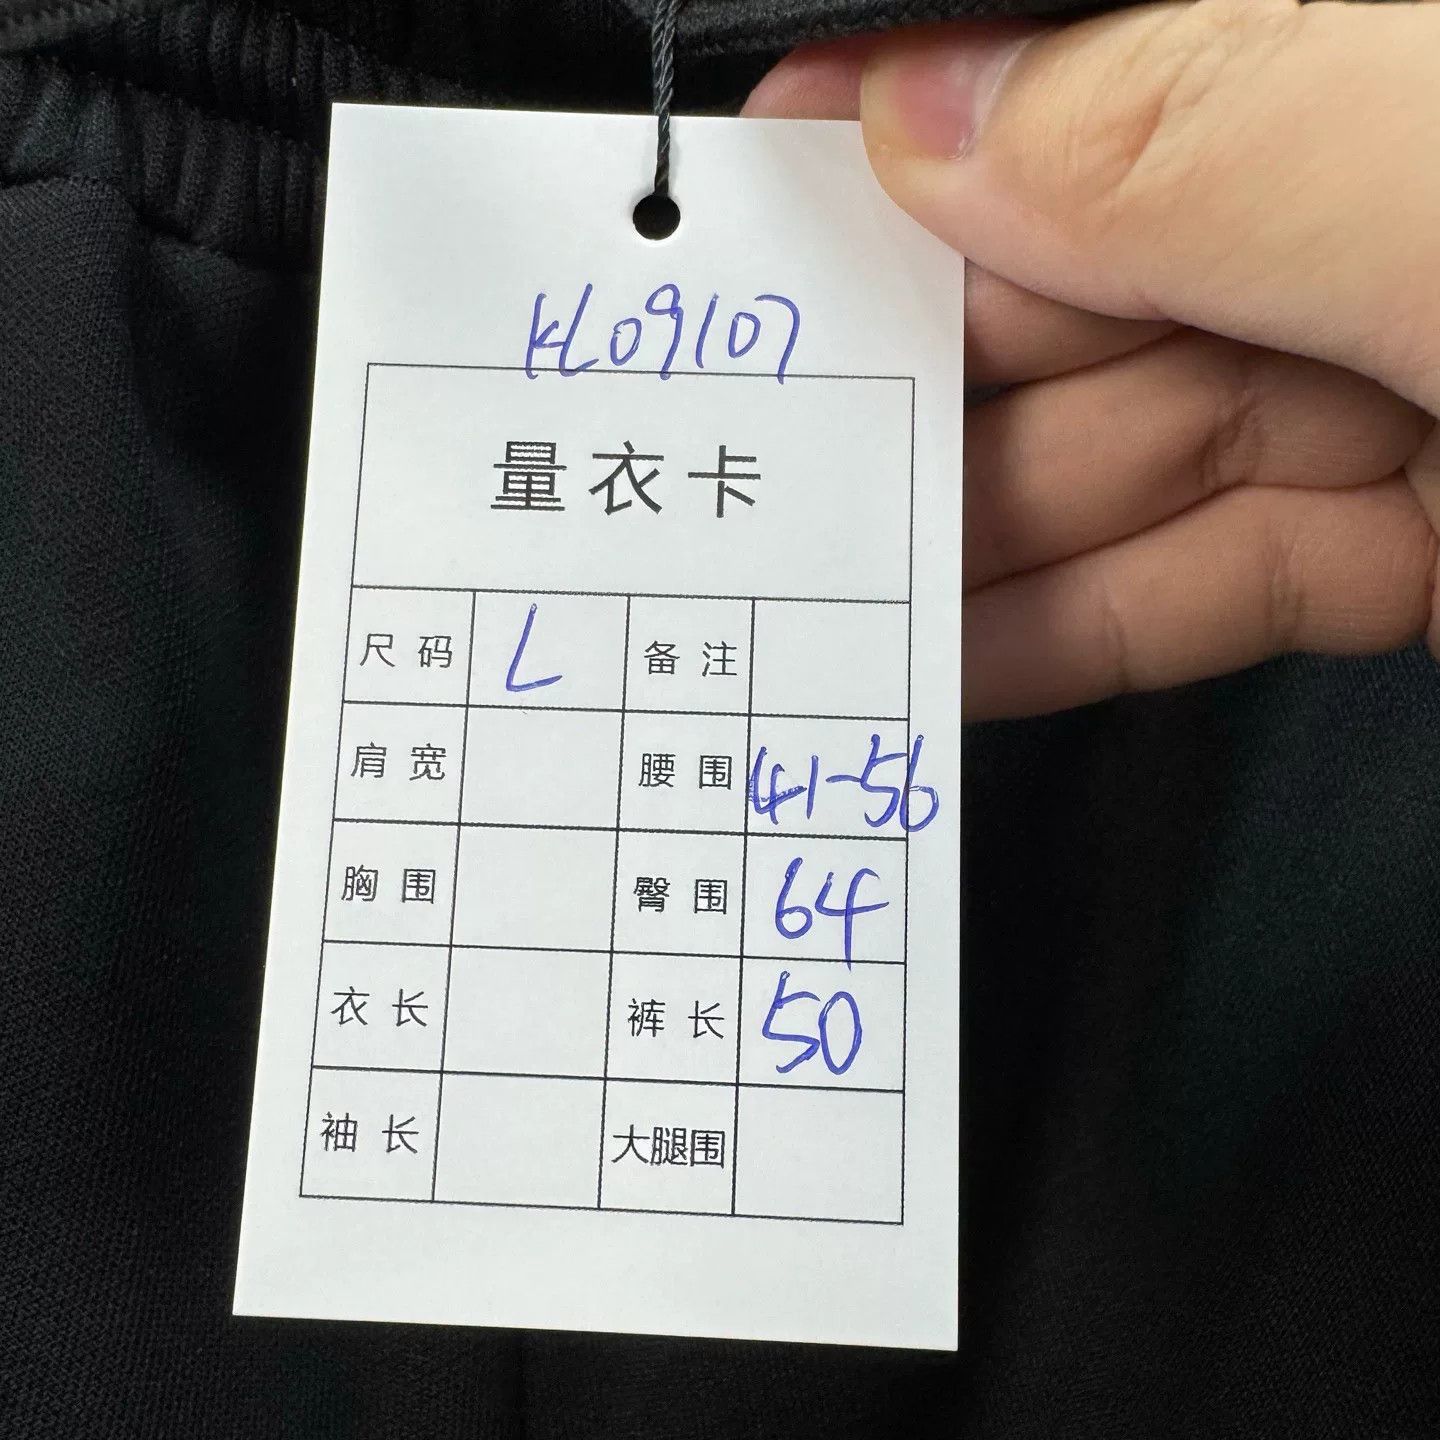 KL09107
量衣卡
尺码 L 备注
肩宽 腰围 41-56
胸围 臀围 64
衣长 裤长 50
袖长 大腿围